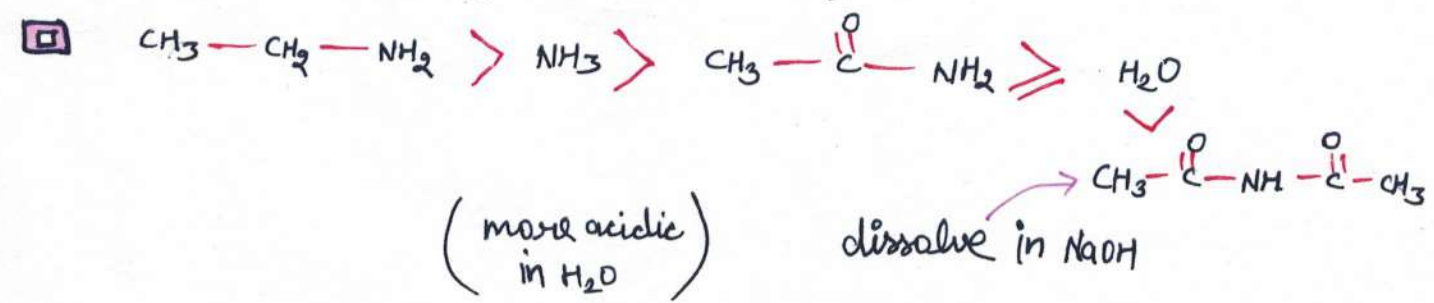 CH3 — CH2 — NH2 > NH3 > CH3 — C(=O) — NH2 ⩾ H2O
>
CH3 — C(=O) — NH — C(=O) — CH3
(more acidic
in H2O)
dissalve in NaOH